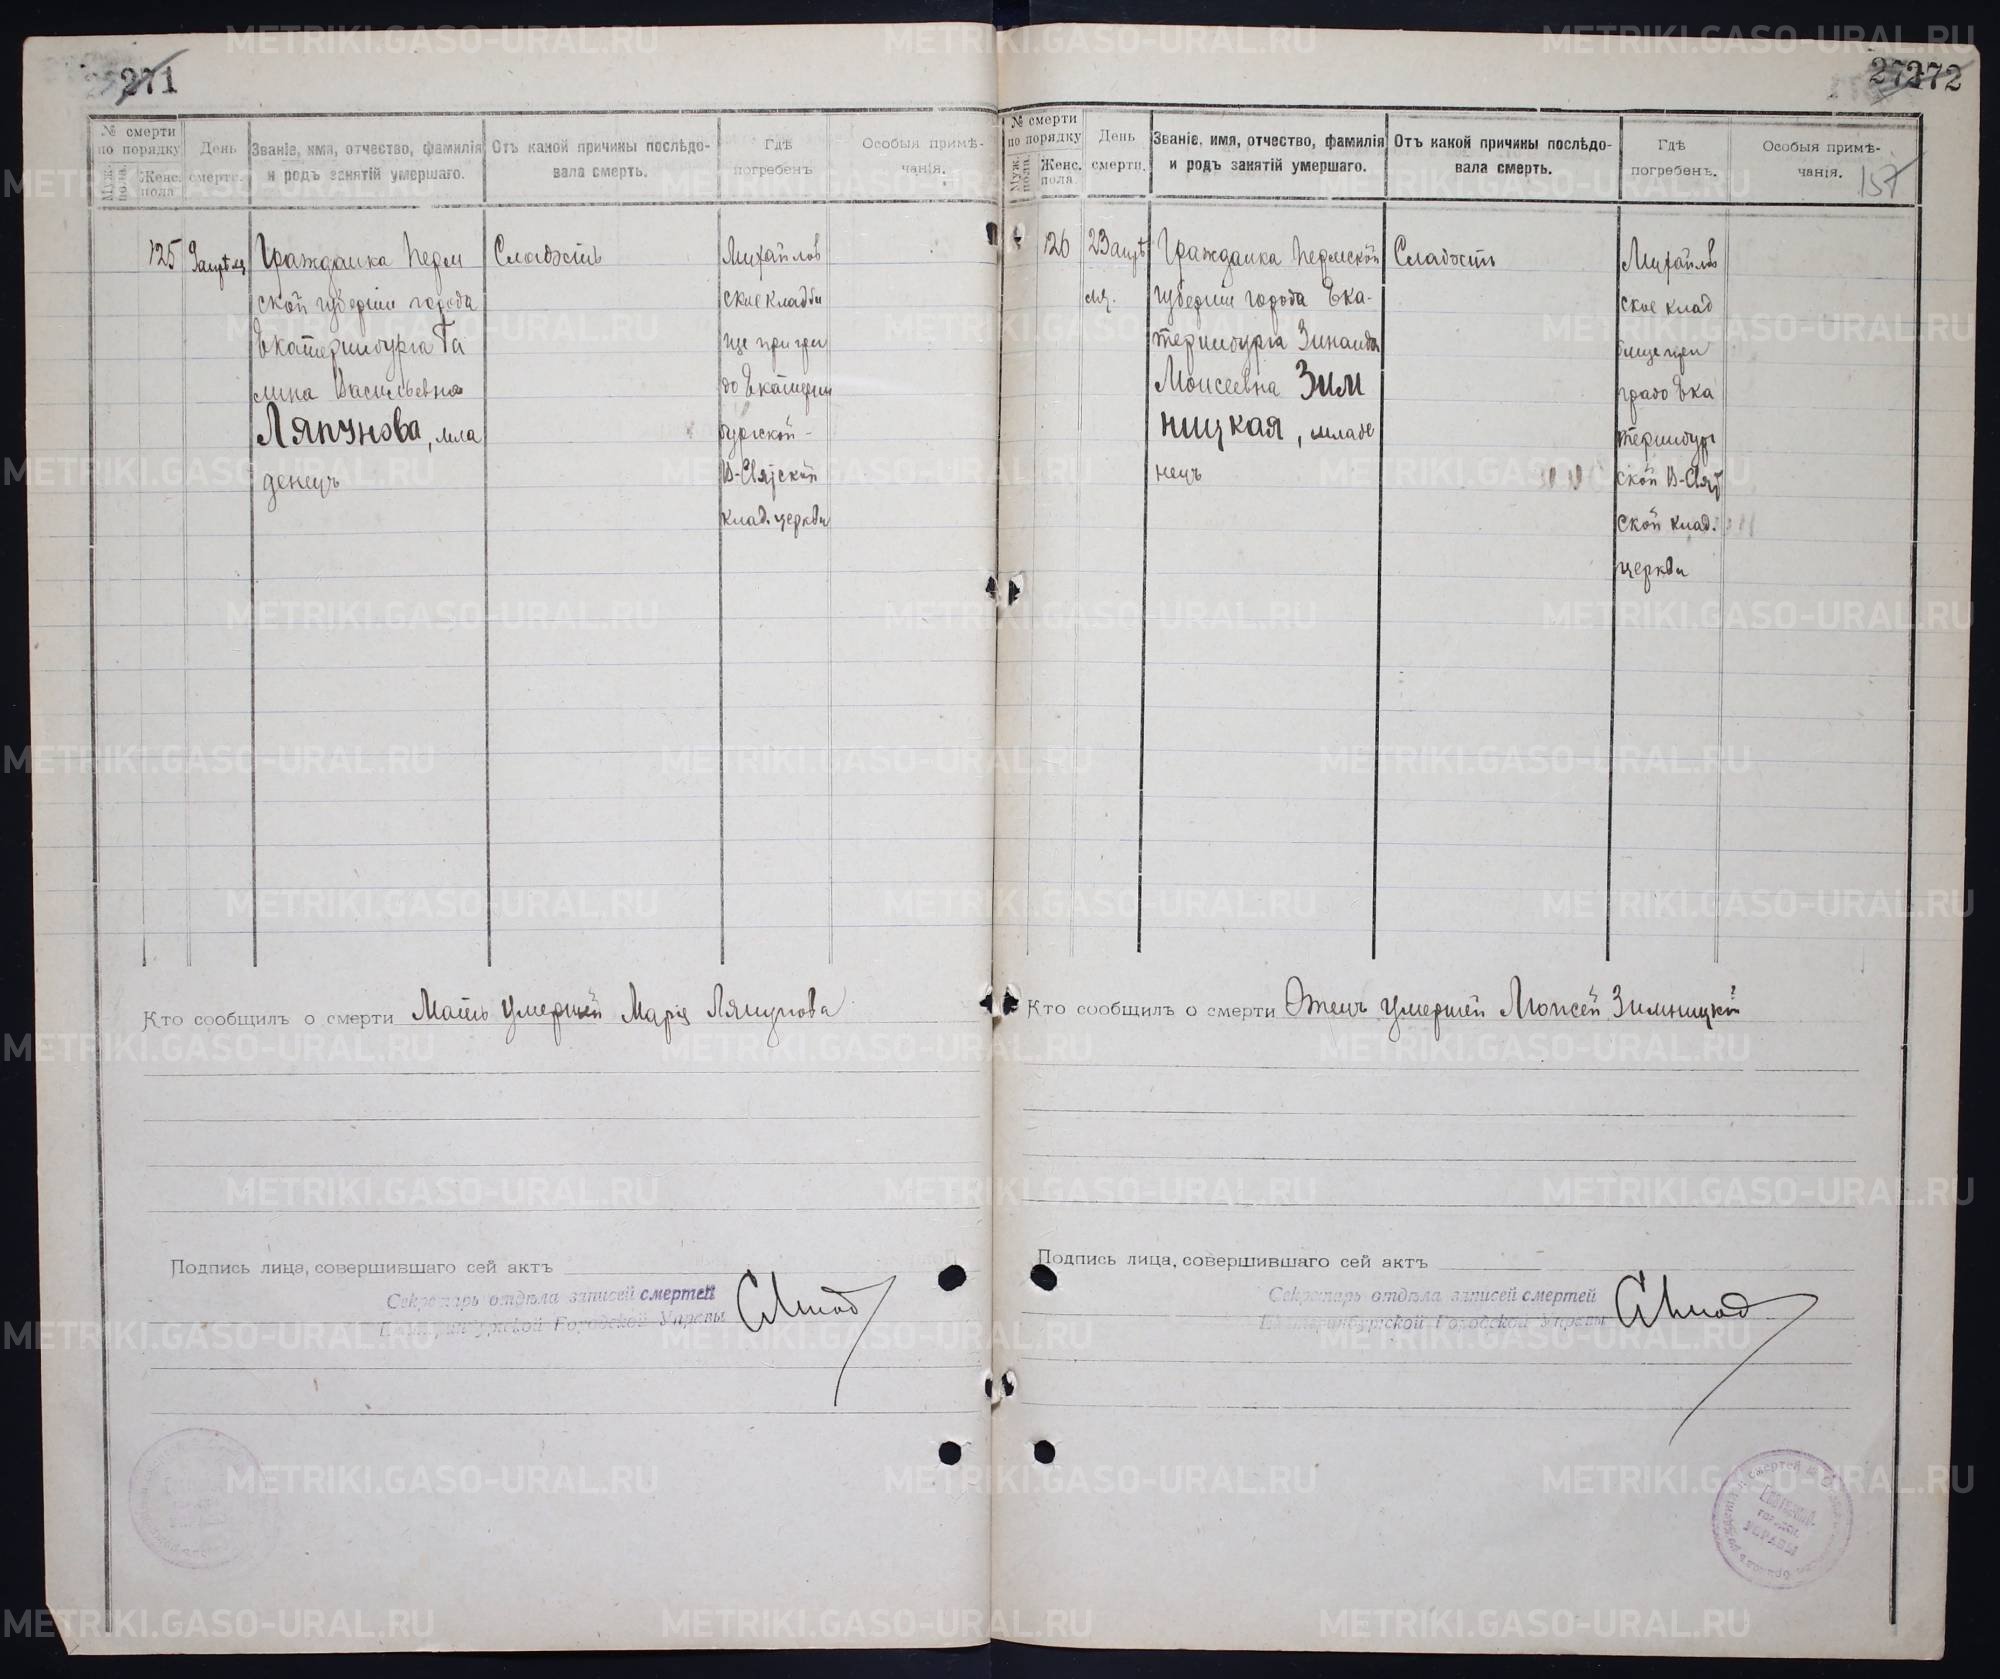 271
№ смерти
по порядку
Муж. пола.
Женс. пола
День
смерти.
Званіе, имя, отчество, фамилія
и родъ занятій умершаго.
Отъ какой причины послѣдо-
вала смерть.
Гдѣ
погребенъ
Особыя примѣ-
чанія.
125
Гражданка Перм
ской губерніи города
Екатеринбурга Га
лина Васильевна
Ляпунова, мла
денецъ
Слабость
Михайлов
ское кладби
ще при гра
до Екатерин
бургской -
В-Святской
клад. церкви
Кто сообщилъ о смерти Мать умершей Марія Ляпунова
Подпись лица, совершившаго сей актъ
Секретарь отдѣла записей смертей
Екатеринбургской Городской Управы
272
157
№ смерти
по порядку
Муж. пола.
Женс. пола.
День
смерти.
Званіе, имя, отчество, фамилія
и родъ занятій умершаго.
Отъ какой причины послѣдо-
вала смерть.
Гдѣ
погребенъ.
Особыя примѣ-
чанія.
126
23
Гражданка Пермской
губерніи города Ека-
теринбурга Зинаида
Моисеевна Зим
ницкая, младе
нецъ
Слабость
Михайлов
ское клад
бище при
градо Ека
теринбург
ской В-Свят
ской клад.
церкви
Кто сообщилъ о смерти Отецъ умершей Моисей Зимницкій
Подпись лица, совершившаго сей актъ
Секретарь отдѣла записей смертей
Екатеринбургской Городской Управы
METRIKI.GASO-URAL.RU